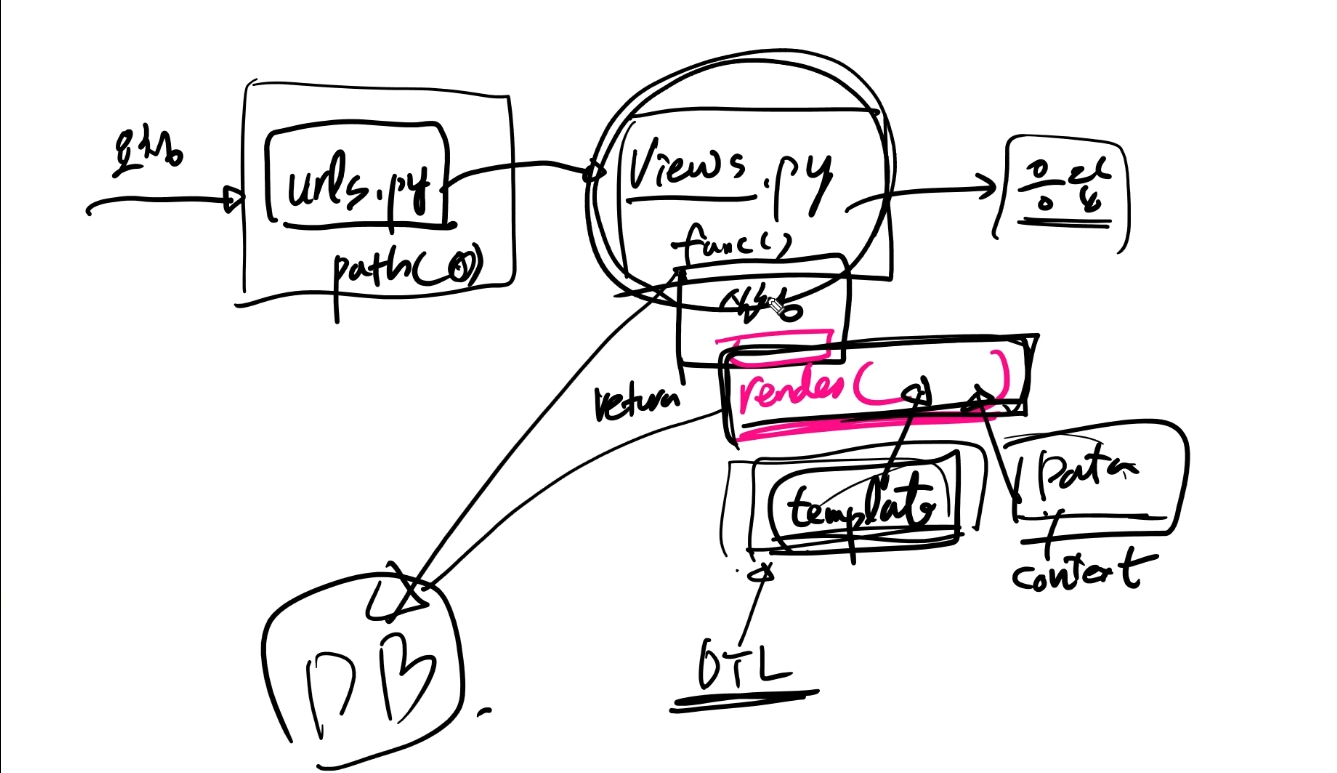 요청
urls.py
path( )
views.py
func()
응답
return
render( )
template
Data
context
DTL
DB